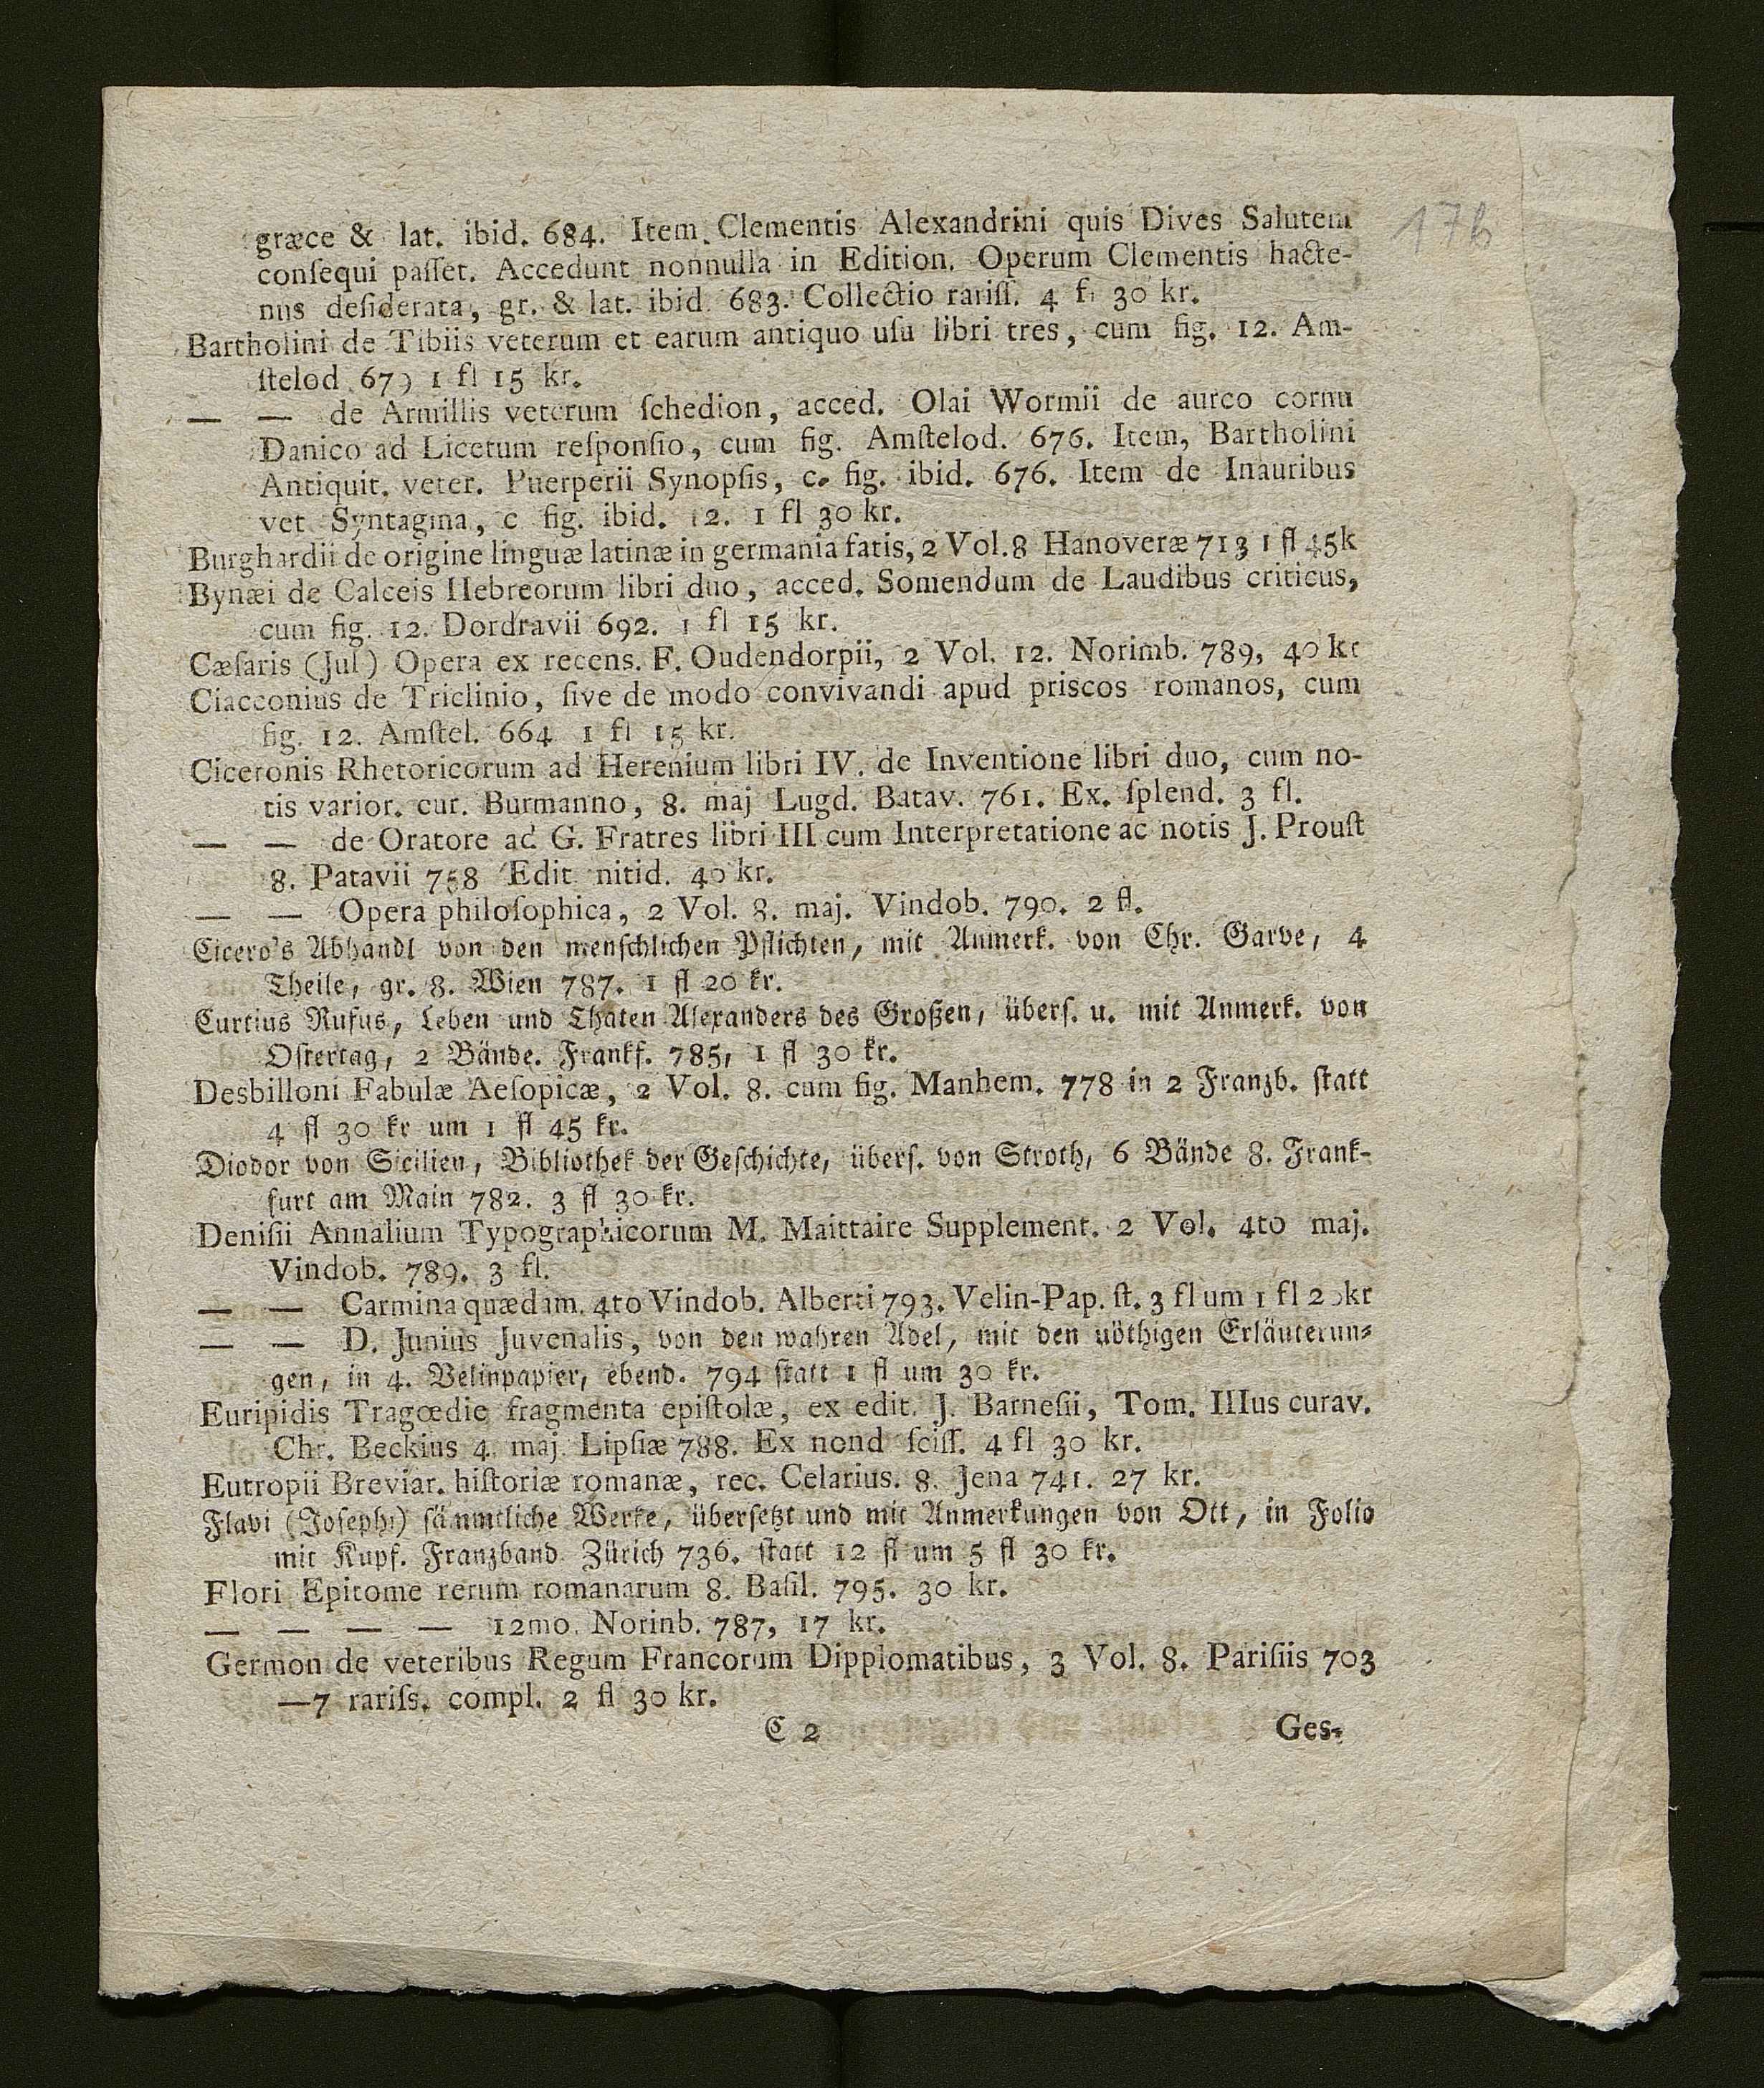 17b
græce & lat. ibid. 684. Item. Clementis Alexandrini quis Dives Salutem
conſequi paſſet. Accedunt nonnulla in Edition. Operum Clementis hacte-
nus deſiderata, gr. & lat. ibid. 683. Collectio rariſſ. 4 f. 30 kr.
Bartholini de Tibiis veterum et earum antiquo uſu libri tres, cum fig. 12. Am-
ſtelod 679 1 fl 15 kr.
— — de Armillis veterum ſchedion, acced. Olai Wormii de aureo cornu
Danico ad Licetum reſponſio, cum fig. Amſtelod. 676. Item, Bartholini
Antiquit. veter. Puerperii Synopſis, c. fig. ibid. 676. Item de Inauribus
vet Syntagma, c fig. ibid. 12. 1 fl 30 kr.
Burghardii de origine linguæ latinæ in germania fatis, 2 Vol. 8 Hanoveræ 713 1 fl 45k
Bynæi de Calceis Hebreorum libri duo, acced. Somendum de Laudibus criticus,
cum fig. 12. Dordravii 692. 1 fl 15 kr.
Cæſaris (Juſ) Opera ex recens. F. Oudendorpii, 2 Vol. 12. Norimb. 789, 40 kr
Ciacconius de Triclinio, ſive de modo convivandi apud priscos romanos, cum
fig. 12. Amſtel. 664 1 fl 15 kr.
Ciceronis Rhetoricorum ad Herenium libri IV. de Inventione libri duo, cum no-
tis varior. cur. Burmanno, 8. maj Lugd. Batav. 761. Ex. ſplend. 3 fl.
— — de Oratore ad G. Fratres libri III cum Interpretatione ac notis J. Prouſt
8. Patavii 758 Edit nitid. 40 kr.
— — Opera philoſophica, 2 Vol. 8. maj. Vindob. 790. 2 fl.
Cicero's Abhandl von den menſchlichen Pflichten, mit Anmerk. von Chr. Garve, 4
Theile, gr. 8. Wien 787. 1 fl 20 kr.
Curtius Rufus, Leben und Thaten Alexanders des Großen, überſ. u. mit Anmerk. von
Oſtertag, 2 Bände. Frankf. 785, 1 fl 30 kr.
Desbilloni Fabulæ Aeſopicæ, 2 Vol. 8. cum fig. Manhem. 778 in 2 Franzb. ſtatt
4 fl 30 kr um 1 fl 45 kr.
Diodor von Sicilien, Bibliothek der Geſchichte, überſ. von Stroth, 6 Bände 8. Frank-
furt am Main 782. 3 fl 30 kr.
Deniſii Annalium Typographicorum M. Maittaire Supplement. 2 Vol. 4to maj.
Vindob. 789. 3 fl.
— — Carmina quædam. 4to Vindob. Alberti 793. Velin-Pap. ſt. 3 fl um 1 fl 20kr
— — D. Junius Juvenalis, von den wahren Adel, mit den nöthigen Erläuterun-
gen, in 4. Velinpapier, ebend. 794 ſtatt 1 fl um 30 kr.
Euripidis Tragœdie fragmenta epiſtolæ, ex edit. J. Barneſii, Tom. IIIus curav.
Chr. Beckius 4. maj. Lipſiæ 788. Ex nond ſciſſ. 4 fl 30 kr.
Eutropii Breviar. hiſtoriæ romanæ, rec. Celarius. 8. Jena 741. 27 kr.
Flavi (Joſephi) ſämmtliche Werke, überſetzt und mit Anmerkungen von Ott, in Folio
mit Kupf. Franzband Zürich 736. ſtatt 12 fl um 5 fl 30 kr.
Flori Epitome rerum romanarum 8. Baſil. 795. 30 kr.
— — — — 12mo. Norinb. 787, 17 kr.
Germon de veteribus Regum Francorum Dipplomatibus, 3 Vol. 8. Pariſiis 703
—7 rariſs. compl. 2 fl 30 kr.
C 2 Ges-